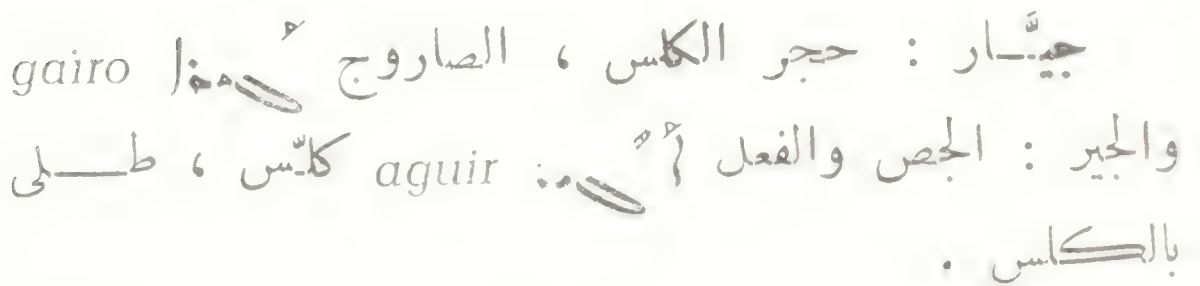 جيَّـار : حجر الكلس ، الصاروج ܓܰܝܪܐ gairo
والجير : الجص والفعل ܐܰܓܝܪ aguir كلّس ، طـــلى
بالكلس .